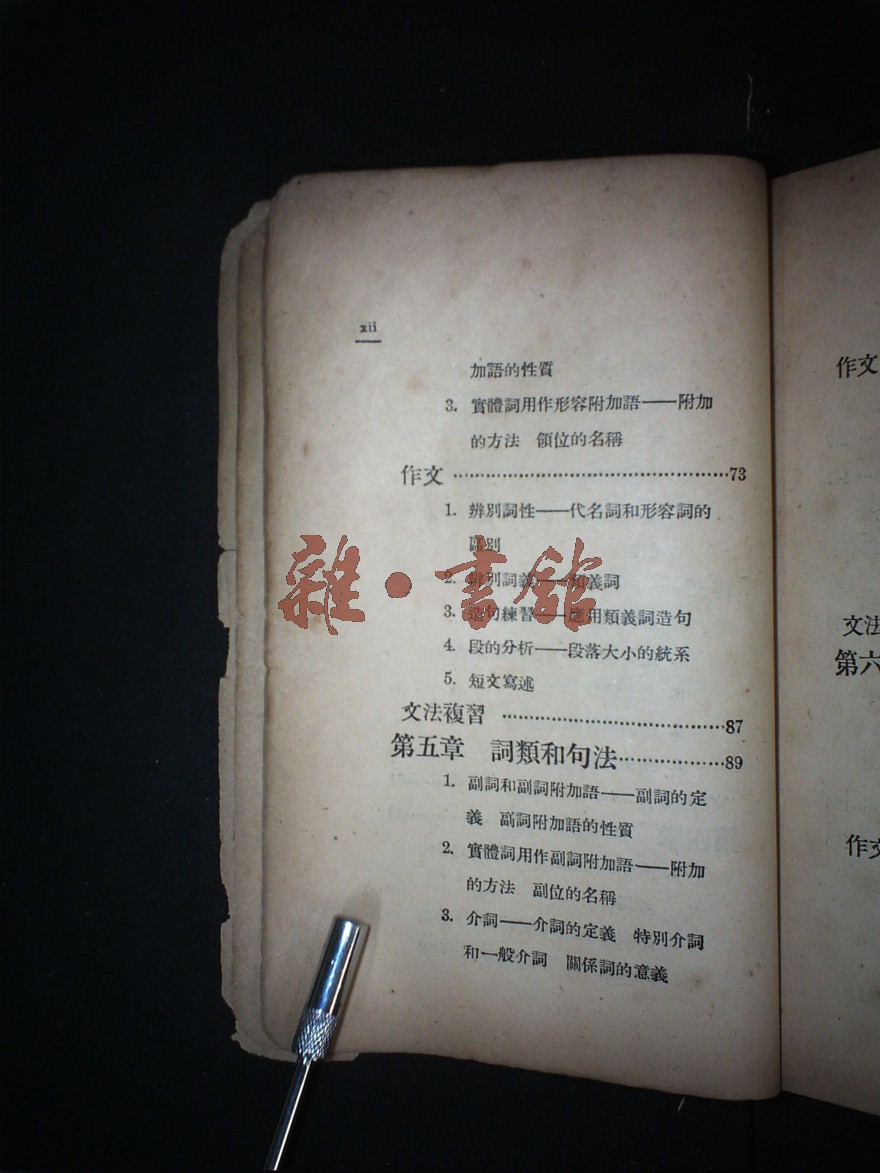 xii
加語的性質
3. 實體詞用作形容附加語——附加
的方法 領位的名稱
作文 ……………………………………73
1. 辨別詞性——代名詞和形容詞的
區別
2. 辨別詞義——義詞
3. 造句練習——應用類義詞造句
4. 段的分析——段落大小的統系
5. 短文寫述
文法複習 ……………………………87
第五章 詞類和句法………………89
1. 副詞和副詞附加語——副詞的定
義 副詞附加語的性質
2. 實體詞用作副詞附加語——附加
的方法 副位的名稱
3. 介詞——介詞的定義 特別介詞
和一般介詞 關係詞的意義
作文
文法
第六
作文
雜·書館